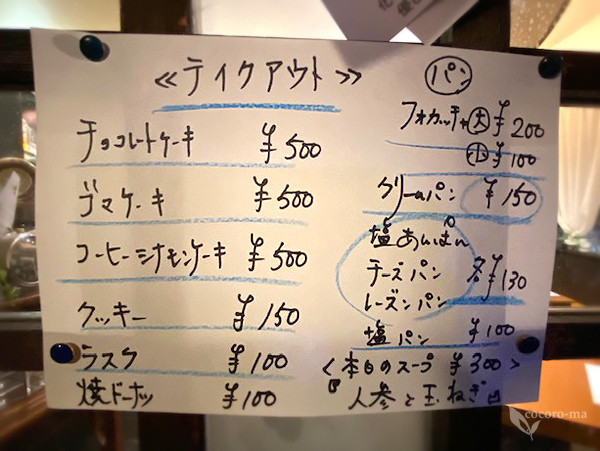 ≪ティクアウト≫
チョコレートケーキ ¥500
ゴマケーキ ¥500
コーヒーシナモンケーキ ¥500
クッキー ¥150
ラスク ¥100
焼ドーナッツ ¥100
パン
フォカッチャ 大 ¥200
小 ¥100
クリームパン ¥150
塩あんぱん
チーズパン 各¥130
レーズンパン
塩パン ¥100
<本日のスープ ¥300>
『人参と玉ねぎ』
cocoro-ma